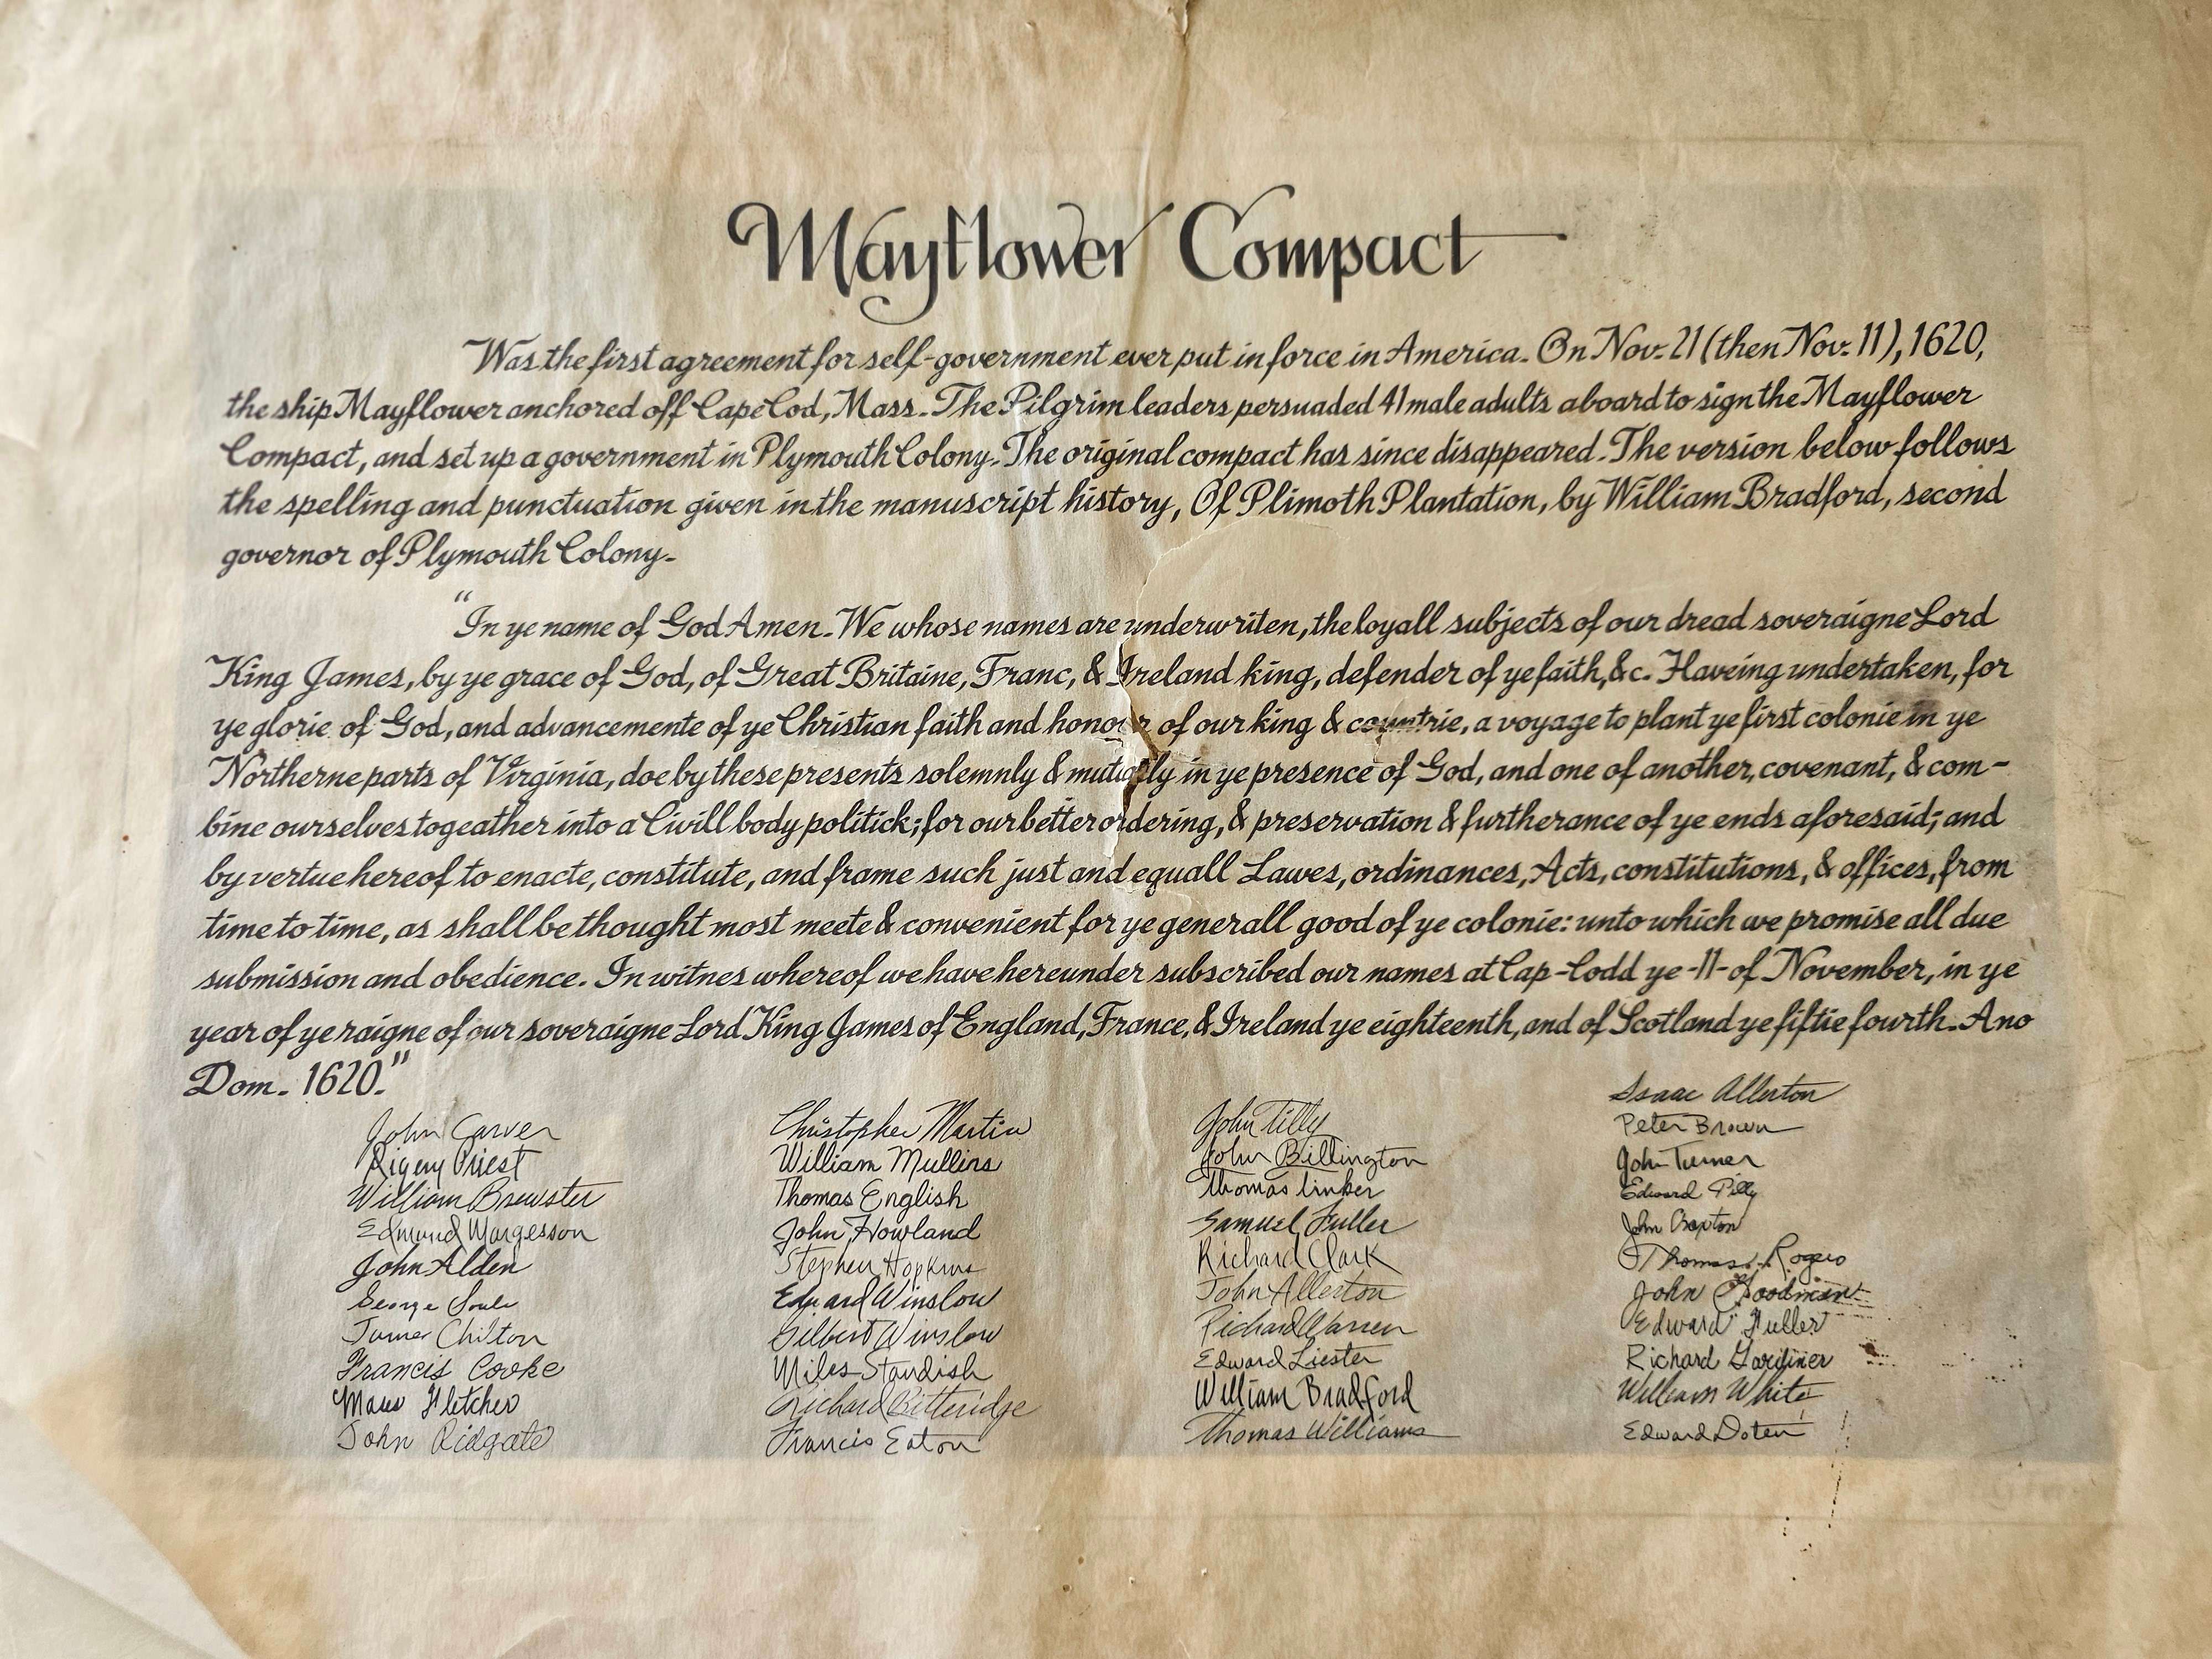 Mayflower Compact
Was the first agreement for self-government ever put in force in America. On Nov. 21 (then Nov. 11), 1620,
the ship Mayflower anchored off Cape Cod, Mass. The Pilgrim leaders persuaded 41 male adults aboard to sign the Mayflower
Compact, and set up a government in Plymouth Colony. The original compact has since disappeared. The version below follows
the spelling and punctuation given in the manuscript history, Of Plimoth Plantation, by William Bradford, second
governor of Plymouth Colony.
"In ye name of God Amen. We whose names are underwriten, the loyall subjects of our dread soveraigne Lord
King James, by ye grace of God, of Great Britaine, Franc, & Ireland king, defender of ye faith, &c. Haveing undertaken, for
ye glorie of God, and advancemente of ye Christian faith and honour of our king & countrie, a voyage to plant ye first colonie in ye
Northerne parts of Virginia, doe by these presents solemnly & mutualy in ye presence of God, and one of another, covenant, & com-
bine ourselves togeather into a Civill body politick; for our better ordering, & preservation & furtherance of ye ends aforesaid; and
by vertue hereof to enacte, constitute, and frame such just and equall Lawes, ordinances, Acts, constitutions, & offices, from
time to time, as shall be thought most meete & convenient for ye generall good of ye colonie: unto which we promise all due
submission and obedience. In witnes whereof we have hereunder subscribed our names at Cap-Codd ye -11- of November, in ye
year of ye raigne of our soveraigne Lord King James of England, France, & Ireland ye eighteenth, and of Scotland ye fiftie fourth. Ano
Dom. 1620."
John Carver
Digery Priest
William Brewster
Edmund Margesson
John Alden
George Soule
James Chilton
Francis Cooke
Moses Fletcher
John Ridgate
Christopher Martin
William Mullins
Thomas English
John Howland
Stephen Hopkins
Edward Winslow
Gilbert Winslow
Miles Standish
Richard Bitteridge
Francis Eaton
John Tilly
John Billington
Thomas Tinker
Samuel Fuller
Richard Clark
John Allerton
Richard Warren
Edward Liester
William Bradford
Thomas Williams
Isaac Allerton
Peter Brown
John Turner
Edward Tilly
John Craxton
Thomas Rogers
John Goodman
Edward Fuller
Richard Gardiner
William White
Edward Doten